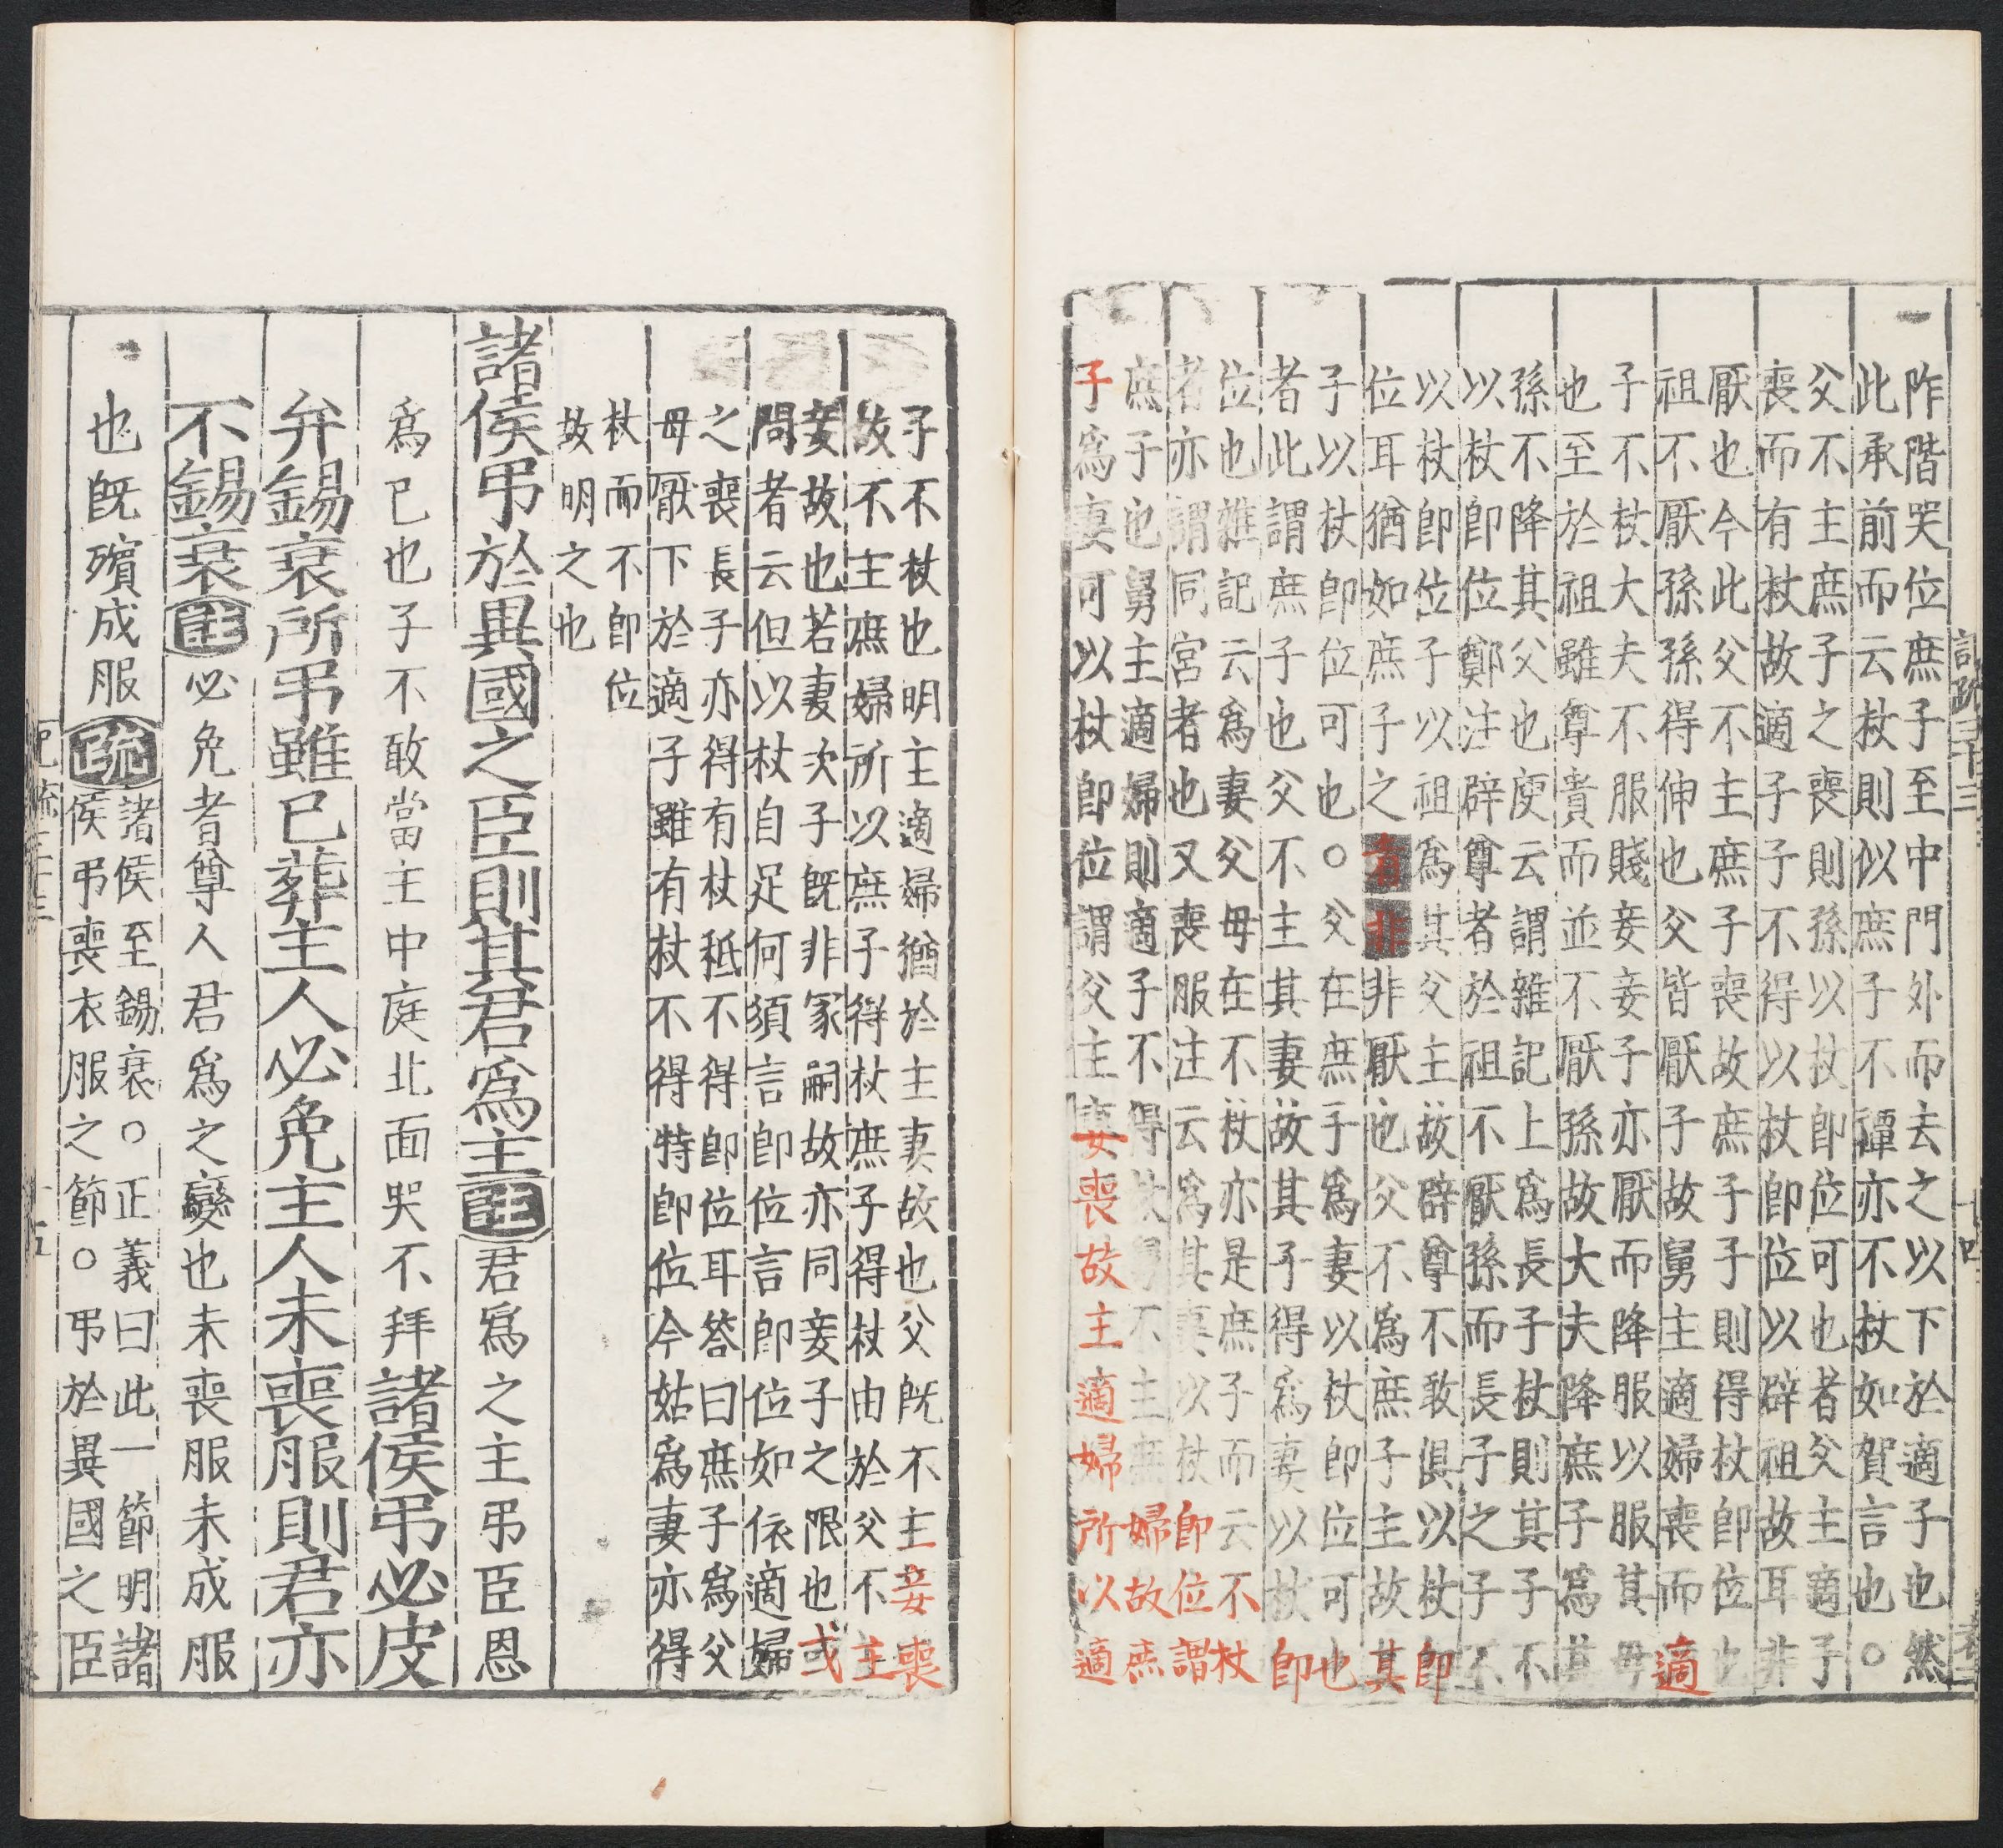 阼階哭位庶子至中門外而去之以下於適子也然
此承前而云杖則似庶子不禫亦不杖如賀言也○
父不主庶子之喪則孫以杖即位可也者父主適子
喪而有杖故適子子不得以杖即位以辟祖故耳非
厭也今此父不主庶子喪故庶子子則得杖即位也
祖不厭孫孫得伸也父皆厭子故舅主適婦喪而適
子不杖大夫不服賤妾妾子亦厭而降服以服其母
也至於祖雖尊貴而並不厭孫故大夫降庶子為其
孫不降其父也庾云謂雜記上為長子杖則其子不
以杖即位鄭注辟尊者於祖不厭孫而長子之子不
以杖即位子以祖為其父主故辟尊不敢俱以杖即
位耳猶如庶子之者非非厭也父不為庶子主故其
子以杖即位可也○父在庶子為妻以杖即位可也
者此謂庶子也父不主其妻故其子得為妻以杖即
位也雜記云為妻父母在不杖亦是庶子而云不杖
者亦謂同宮者也又喪服注云為其妻以杖即位謂
庶子也舅主適婦則適子不得杖舅不主庶婦故庶
子為妻可以杖即位謂父主妾喪故主適婦所以適
記疏三十三
十四
子不杖也明主適婦猶於主妻故也父既不主妾喪
故不主庶婦所以庶子得杖庶子得杖由於父不主
妾故也若妻次子既非冢嗣故亦同妾子之限也或
問者云但以杖自足何須言即位言即位如依適婦
之喪長子亦得有杖祗不得即位耳答曰庶子為父
母厭下於適子雖有杖不得特即位今姑為妻亦得
杖而不即位
故明之也
諸侯弔於異國之臣則其君為主注君為之主弔臣恩
為已也子不敢當主中庭北面哭不拜諸侯弔必皮
弁錫衰所弔雖已葬主人必免主人未喪服則君亦
不錫衰注必免者尊人君為之變也未喪服未成服
也既殯成服疏諸侯至錫衰○正義曰此一節明諸
侯弔喪衣服之節○弔於異國之臣